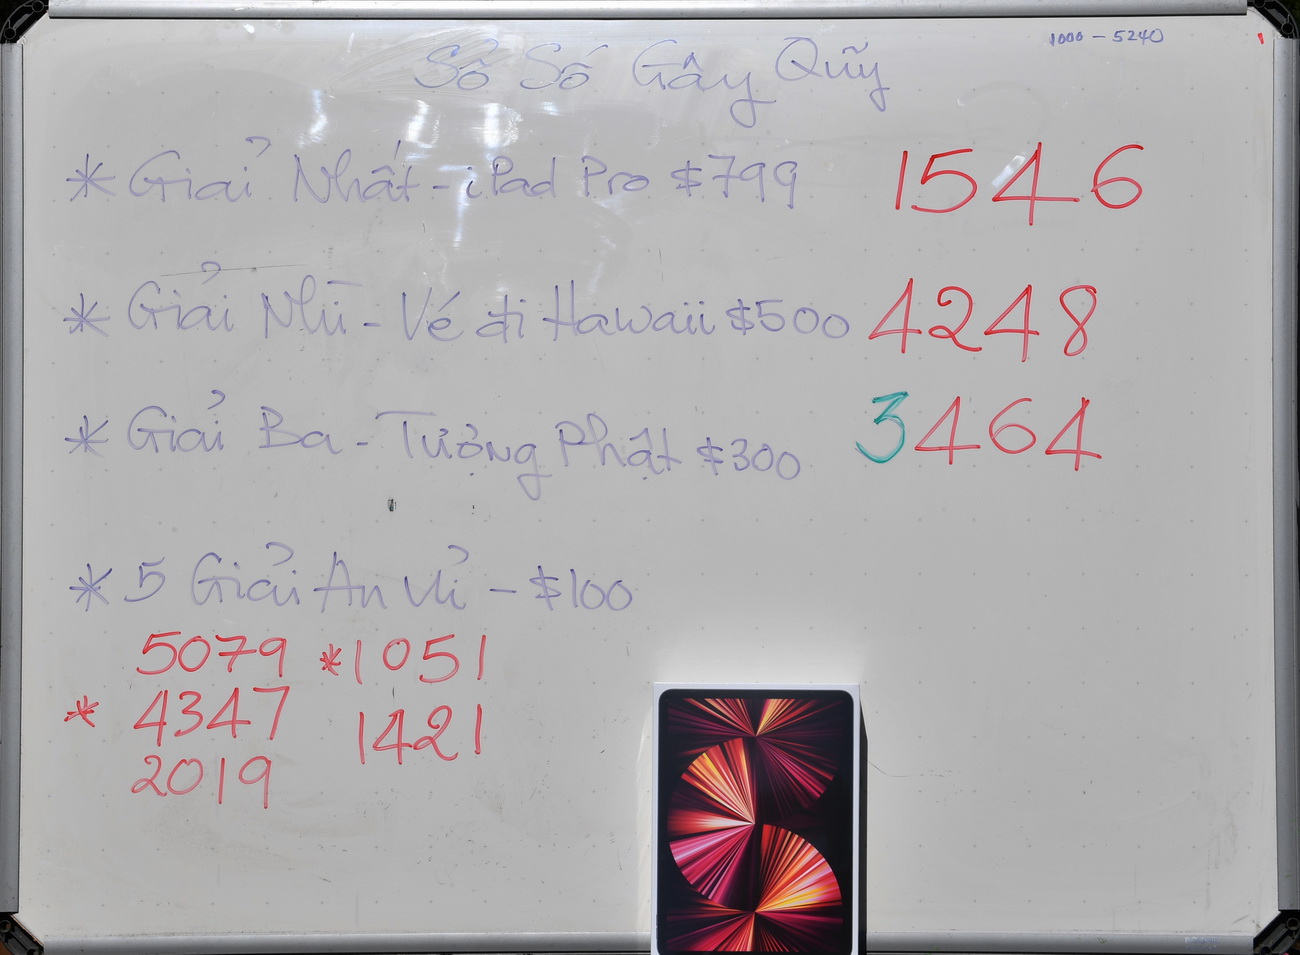 1000 - 5240
Sổ Số Gây Quỹ
* Giải Nhất - iPad Pro $799 1546
* Giải Nhì - Vé đi Hawaii $500 4248
* Giải Ba - Tượng Phật $300 3464
* 5 Giải An Ủi - $100
5079 * 1051
* 4347 1421
2019